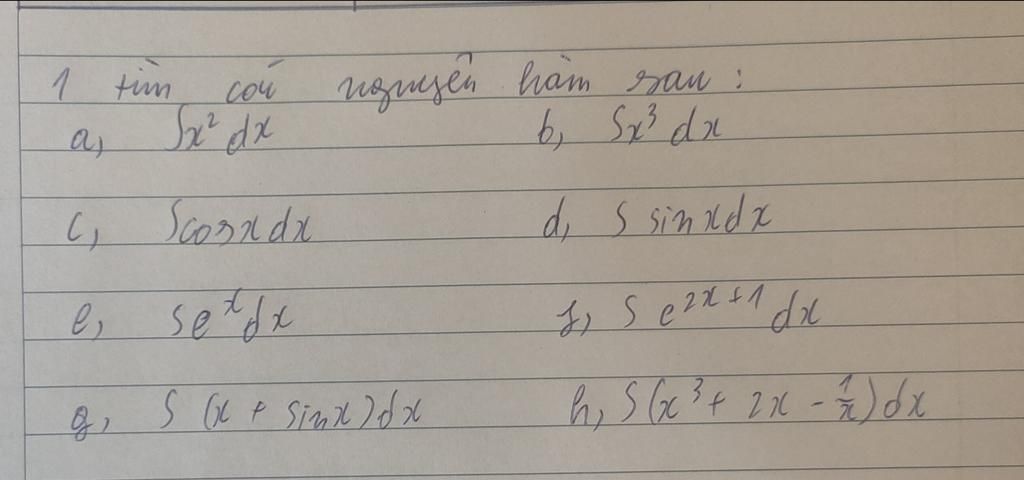 1 tìm các nguyên hàm sau:
a, ∫x² dx b, ∫x³ dx
c, ∫cosxdx d, ∫ sinxdx
e, ∫eˣdx f, ∫ e²ˣ⁺¹ dx
g, ∫ (x + sinx)dx h, ∫(x³ + 2x - 1/x)dx